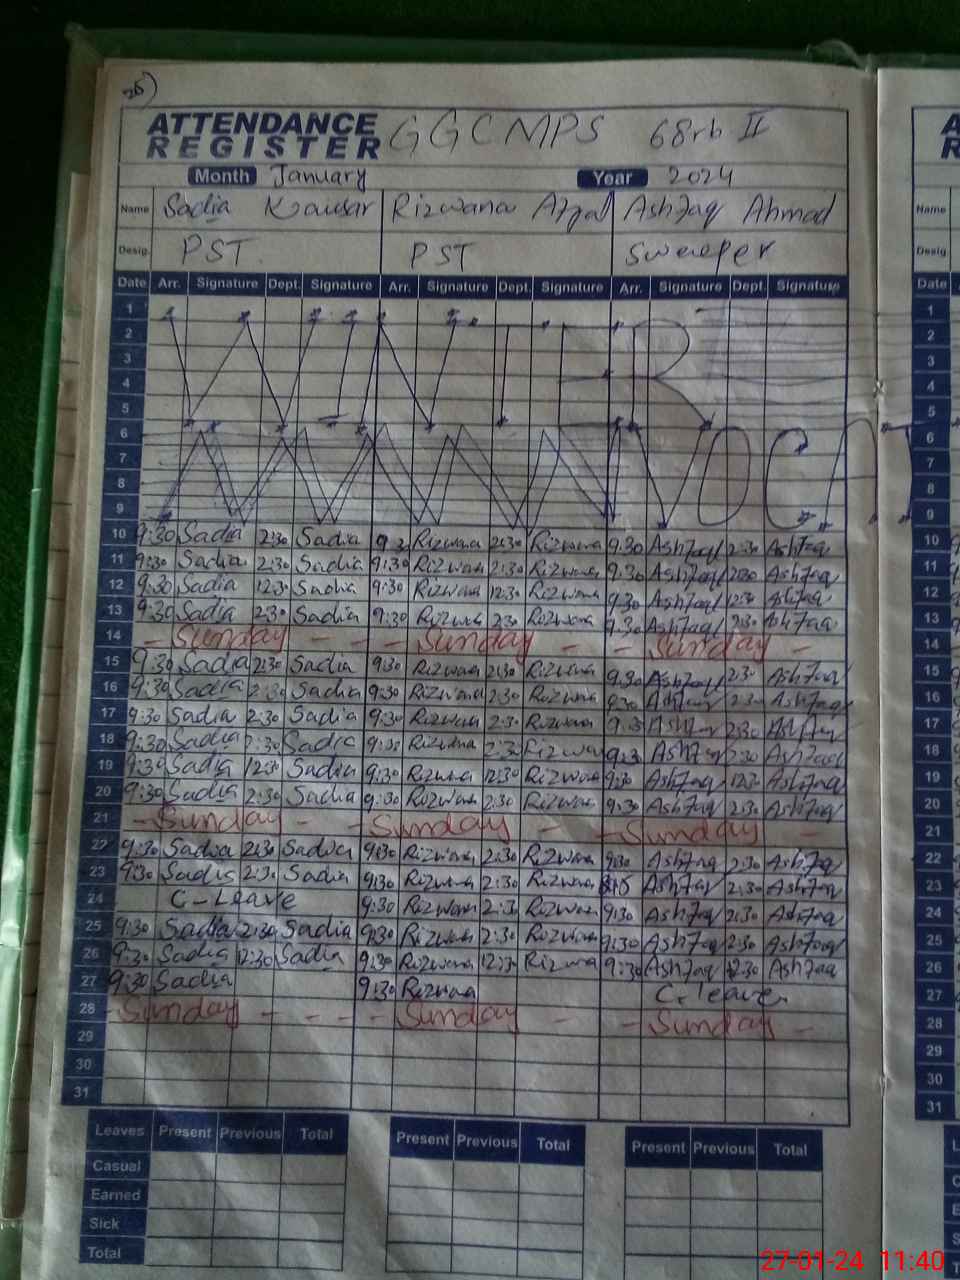 26)
ATTENDANCE REGISTER GGCMPS 68rb II
Month January Year 2024
Name Sadia Kausar Rizwana Afzal Ashfaq Ahmad
Desig. PST PST Sweeper
Date Arr. Signature Dept. Signature Arr. Signature Dept. Signature Arr. Signature Dept. Signature
1
2
3
4
5
6
7
8
9
10 9:30 Sadia 2:30 Sadia 9:3 Rizwana 2:30 Rizwana 9:30 Ashfaq 2:30 Ashfaq
11 9:30 Sadia 2:30 Sadia 9:30 Rizwana 2:30 Rizwana 9:30 Ashfaq 2:30 Ashfaq
12 9:30 Sadia 12:30 Sadia 9:30 Rizwana 12:30 Rizwana 9:30 Ashfaq 12:30 Ashfaq
13 9:30 Sadia 2:30 Sadia 9:30 Rizwana 2:30 Rizwana 9:30 Ashfaq 2:30 Ashfaq
14 - Sunday - - - Sunday - - Sunday -
15 9:30 Sadia 2:30 Sadia 9:30 Rizwana 2:30 Rizwana 9:30 Ashfaq 2:30 Ashfaq
16 9:30 Sadia 2:30 Sadia 9:30 Rizwana 2:30 Rizwana 9:30 Ashfaq 2:30 Ashfaq
17 9:30 Sadia 2:30 Sadia 9:30 Rizwana 2:3 Rizwana 9:3 Ashfaq 2:30 Ashfaq
18 9:30 Sadia 2:30 Sadia 9:30 Rizwana 2:30 Rizwana 9:3 Ashfaq 2:30 Ashfaq
19 9:30 Sadia 12:30 Sadia 9:30 Rizwana 12:30 Rizwana 9:30 Ashfaq 12:30 Ashfaq
20 9:30 Sadia 2:30 Sadia 9:30 Rizwana 2:30 Rizwana 9:30 Ashfaq 2:30 Ashfaq
21 - Sunday - - Sunday - - Sunday -
22 9:30 Sadia 2:30 Sadia 9:30 Rizwana 2:30 Rizwana 9:30 Ashfaq 2:30 Ashfaq
23 9:30 Sadia 2:30 Sadia 9:30 Rizwana 2:30 Rizwana Ashfaq 2:30 Ashfaq
24 C-Leave 9:30 Rizwana 2:3 Rizwana 9:30 Ashfaq 2:30 Ashfaq
25 9:30 Sadia 2:30 Sadia 9:30 Rizwana 2:30 Rizwana 9:30 Ashfaq 2:30 Ashfaq
26 9:30 Sadia 12:30 Sadia 9:30 Rizwana 12:30 Rizwana 9:30 Ashfaq 12:30 Ashfaq
27 9:30 Sadia 9:30 Rizwana C-leave
28 - Sunday - - - - Sunday - - Sunday -
29
30
31
Leaves Present Previous Total Present Previous Total Present Previous Total
Casual
Earned
Sick
Total
27-01-24 11:40